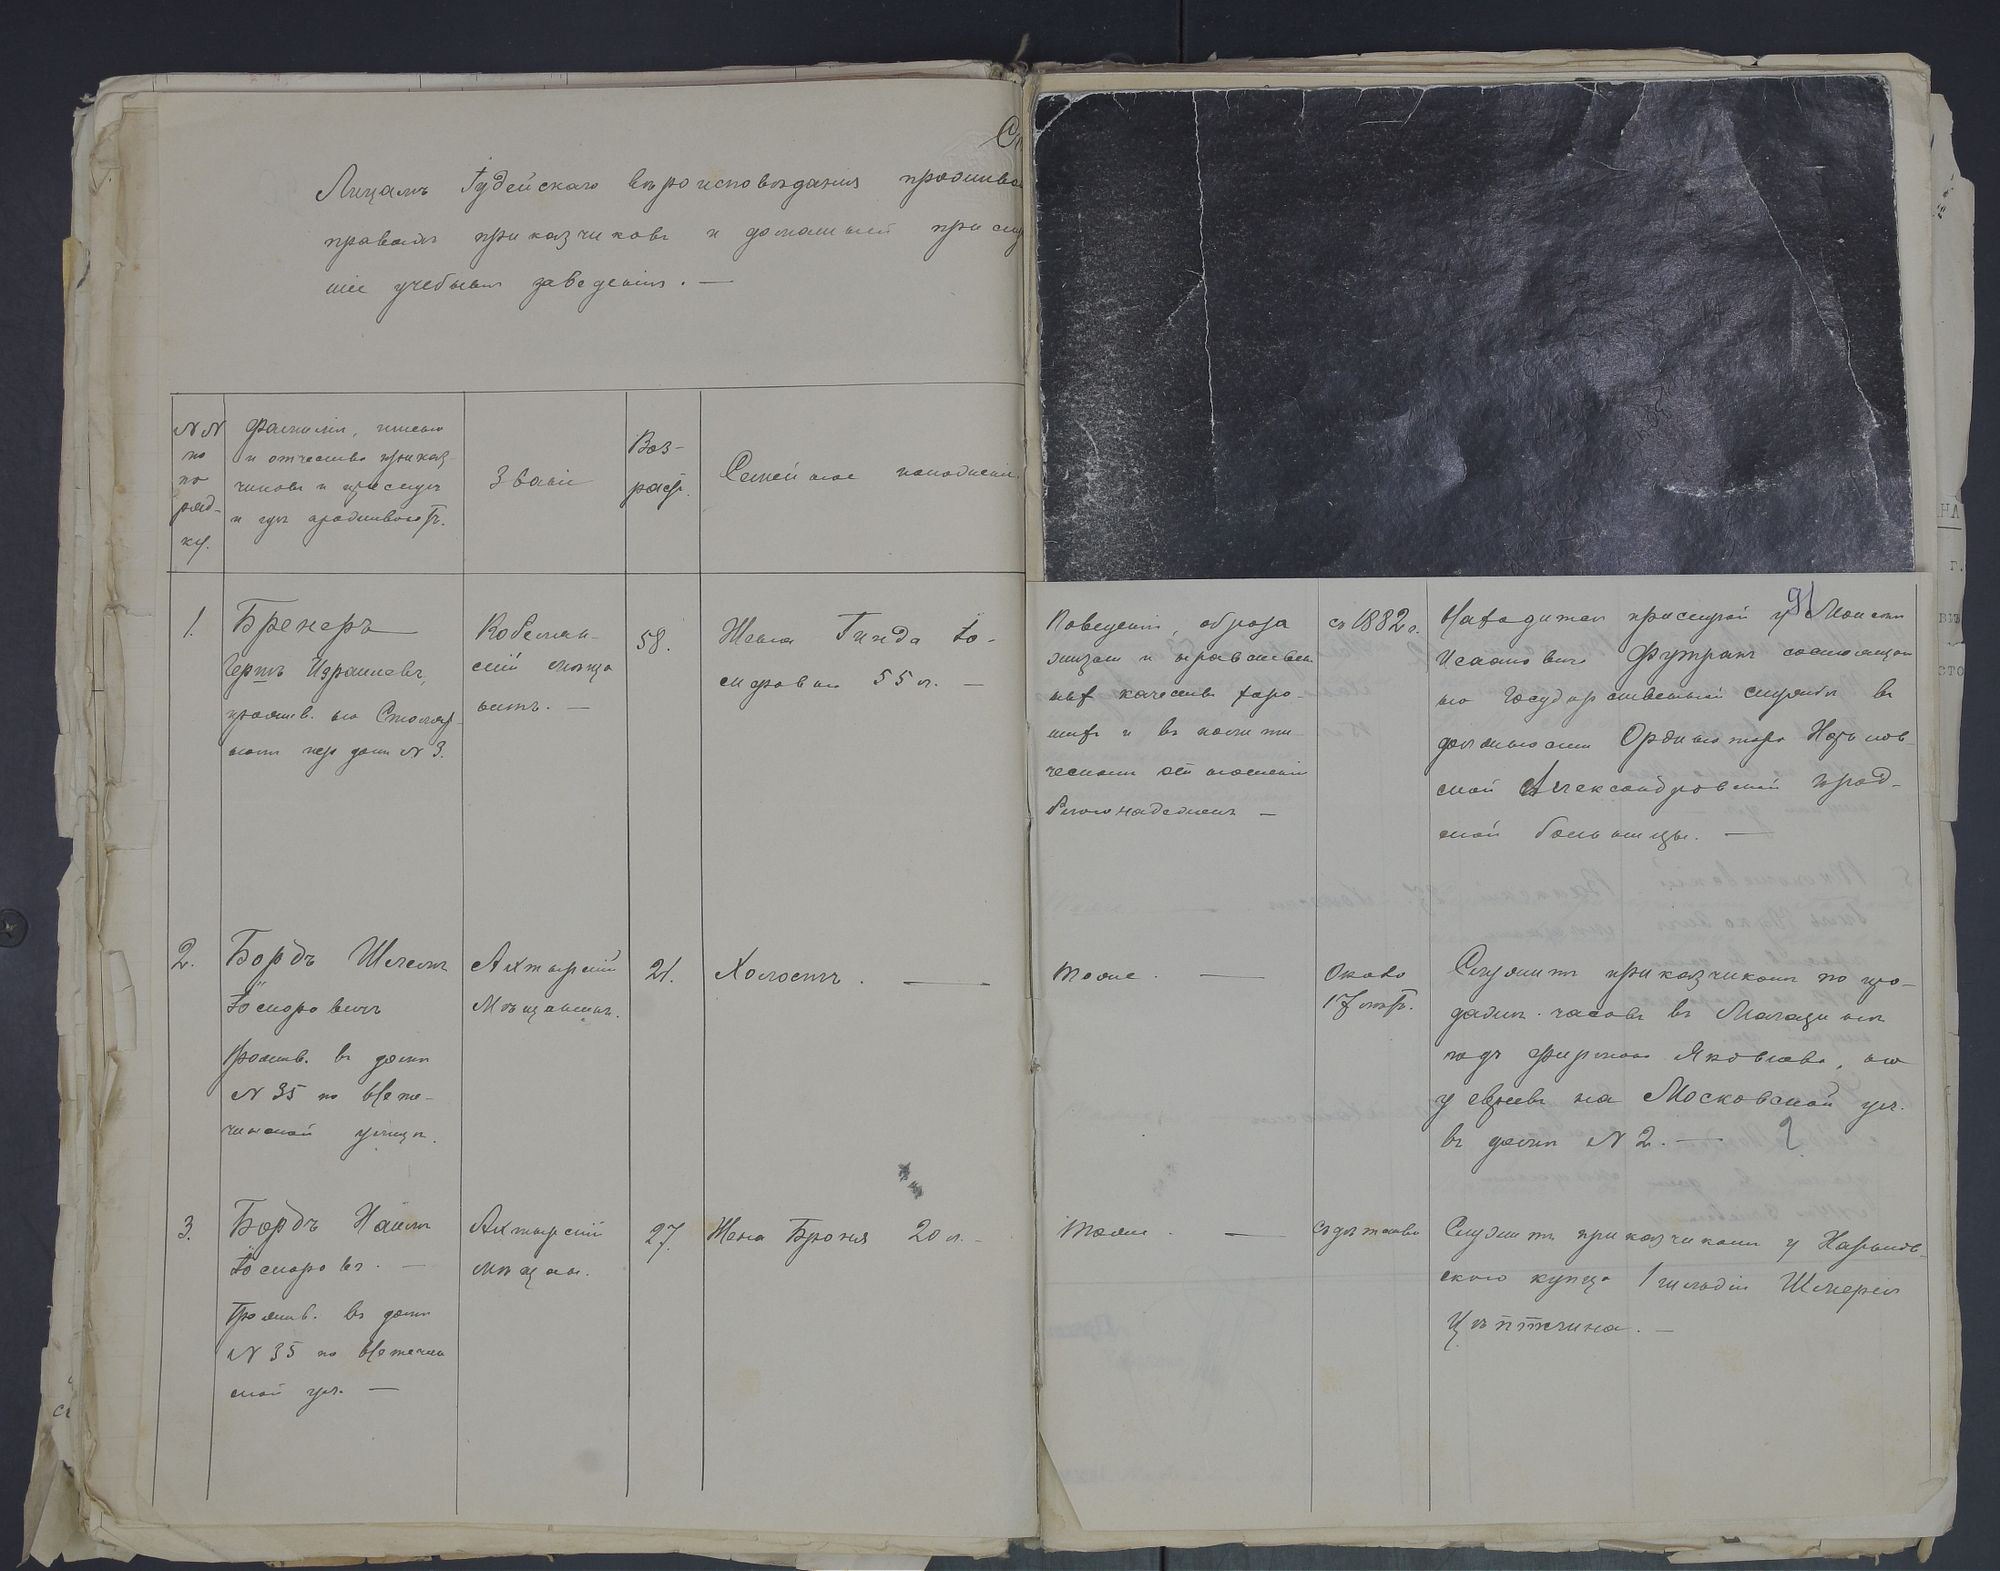 Сп
Лицамъ Іудейскаго вѣроисповѣданія прожива
правамъ приказчиковъ и домашней прислу
шіе учебныя заведенія. —
№№ по порядку.
Фамилія, имена
и отчества приказ-
чиковъ и прислуги
и гдѣ проживаютъ.
Званіе
Воз-
раст.
Семейное положеніе
91
1.
Бренеръ
Герцъ Израилевъ,
прожив. по Столяр-
ному пер домъ № 3.
Кобеляк-
скій мѣща
нинъ. —
58.
Жена Гинда Іо-
сифовна 55 л. —
Поведенія, образа
жизни и нравствен
ныхъ качествъ хоро-
шихъ и въ полити-
ческомъ отношеніи
благонадеженъ —
съ 1882 г.
Находится прислугой у Моисея
Исааковича Футранъ состоящаго
на Государственной службѣ въ
должности Ординатора Харьков-
ской Александровской город-
ской больницы. —
2.
Бордъ Шлема
Іосифовичъ
Прожив. въ домѣ
№ 35 по Нете-
чинской улицѣ.
Ахтырскій
Мѣщанинъ.
21.
Холостъ. —
Тоже. —
Около
17 лѣтъ.
Служитъ приказчикомъ по про-
дажѣ часовъ въ Магазинѣ
подъ фирмою Яковлева, но
у евреевъ на Московской ул.
въ домѣ № 2. —
2
3.
Бордъ Хаимъ
Іосифовъ. —
Прожив. въ домѣ
№ 35 по Нетечин
ской ул. —
Ахтырскій
мѣщан.
27.
Жена Броня 20 л. —
Тоже. —
Съ дѣтства
Служитъ приказчикомъ у Харьков-
скаго купца 1 гильдіи Шмерел